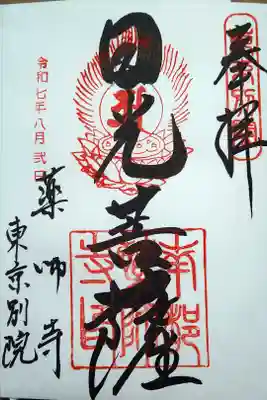 奉拝
日光菩薩
令和七年八月弐日
薬師寺
東京別院